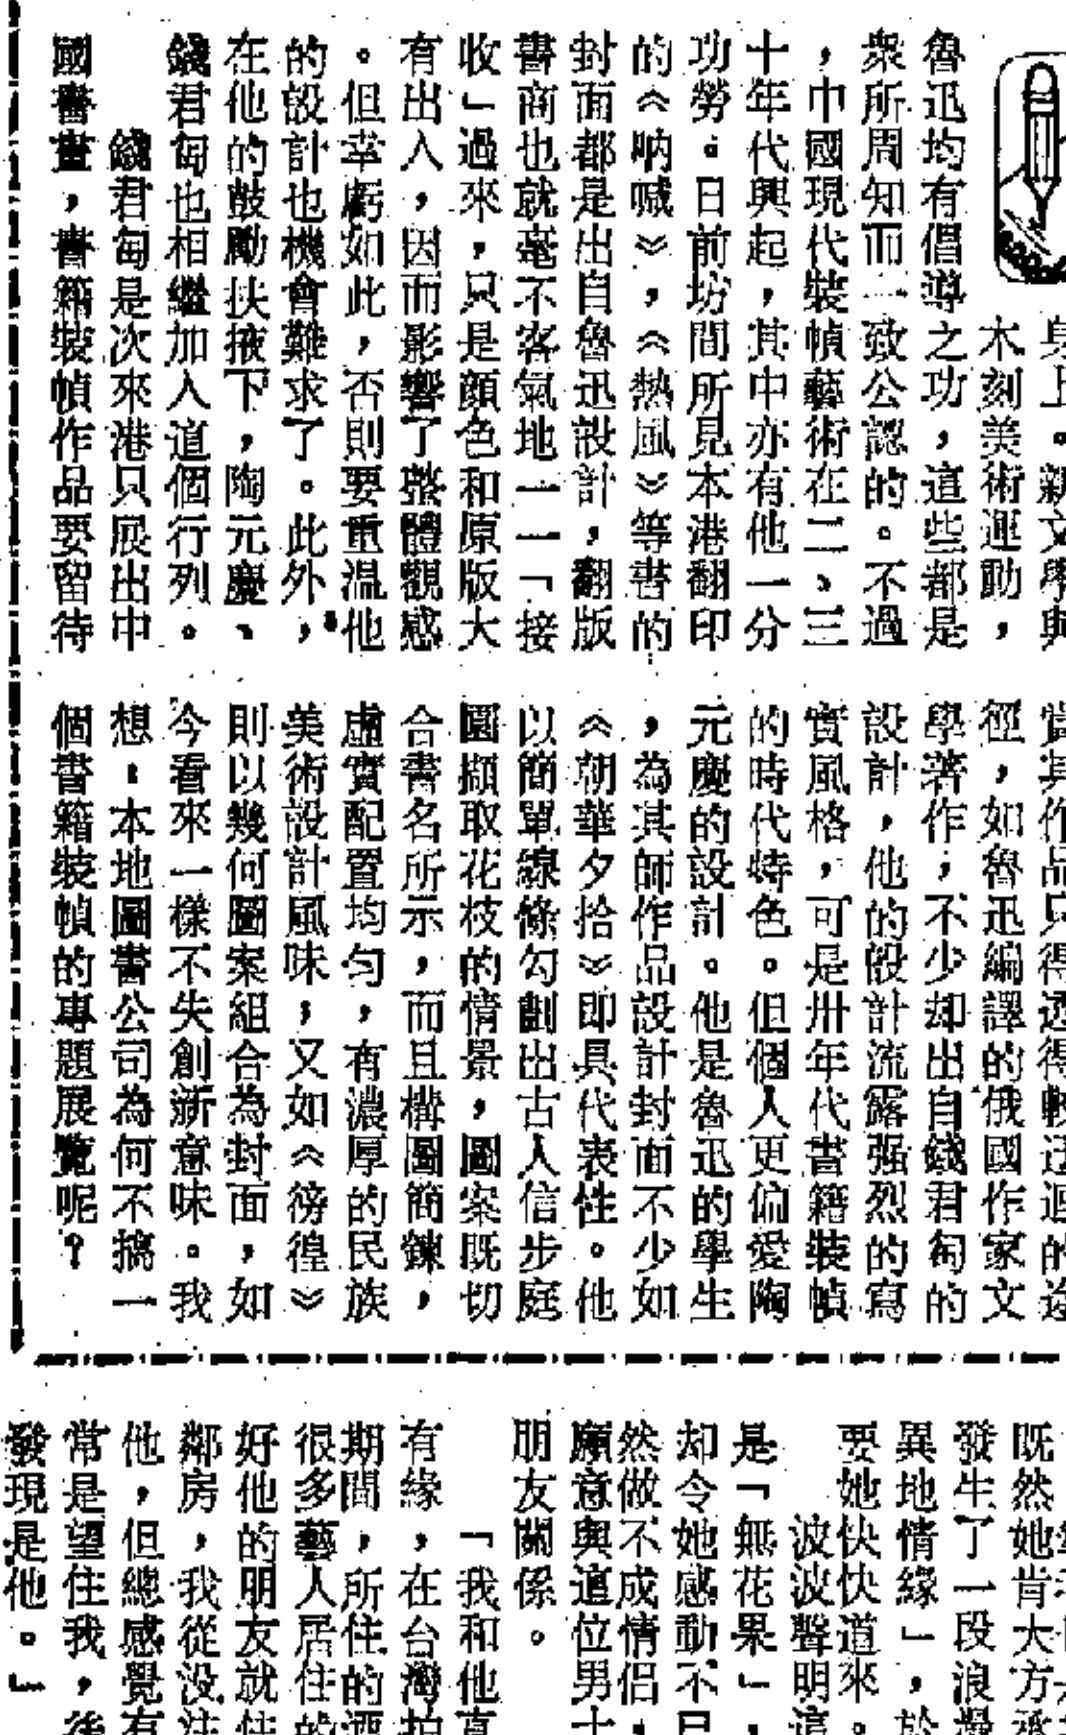 身上。新文學與
木刻美術運動，
魯迅均有倡導之功，這些都是
衆所周知而一致公認的。不過
，中國現代裝幀藝術在二、三
十年代興起，其中亦有他一分
功勞。日前坊間所見本港翻印
的《吶喊》，《熱風》等書的
封面都是出自魯迅設計，翻版
書商也就毫不客氣地一一「接
收」過來，只是顏色和原版大
有出入，因而影響了整體觀感
。但幸虧如此，否則要重溫他
的設計也機會難求了。此外，
在他的鼓勵扶掖下，陶元慶、
錢君匋也相繼加入這個行列。
錢君匋是次來港只展出中
國書畫，書籍裝幀作品要留待
其作品只得透得較迂迴的途
徑，如魯迅編譯的俄國作家文
學著作；不少却出自錢君匋的
設計，他的設計流露强烈的寫
實風格，可是卅年代書籍裝幀
的時代特色。但個人更偏愛陶
元慶的設計。他是魯迅的學生
，為其師作品設計封面不少如
《朝華夕拾》即具代表性。他
以簡單線條勾劃出古人信步庭
園擷取花枝的情景，圖案既切
合書名所示，而且構圖簡鍊，
虛實配置均勻，有濃厚的民族
美術設計風味，又如《徬徨》
則以幾何圖案組合為封面，如
今看來一樣不失創新意味。我
想：本地圖書公司為何不搞一
個書籍裝幀的專題展覽呢？
既然她肯大方承
發生了一段浪漫
異地情緣」，於
要她快快道來。
波波聲明這
是「無花果」，
却令她感動不已
然做不成情侶，
願意與這位男士
朋友關係。
「我和他真
有緣，在台灣拍
期間，所住的酒
很多藝人居住的
好他的朋友就住
鄰房，我從没注
他，但總感覺有
常是望住我，後
發現是他。」